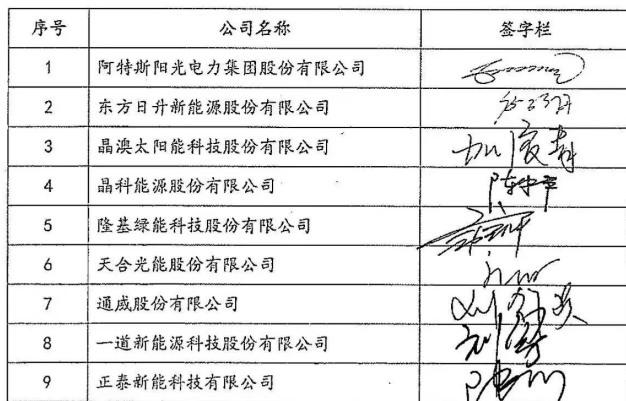 序号 公司名称 签字栏
1 阿特斯阳光电力集团股份有限公司
2 东方日升新能源股份有限公司
3 晶澳太阳能科技股份有限公司
4 晶科能源股份有限公司
5 隆基绿能科技股份有限公司
6 天合光能股份有限公司
7 通威股份有限公司
8 一道新能源科技股份有限公司
9 正泰新能科技有限公司